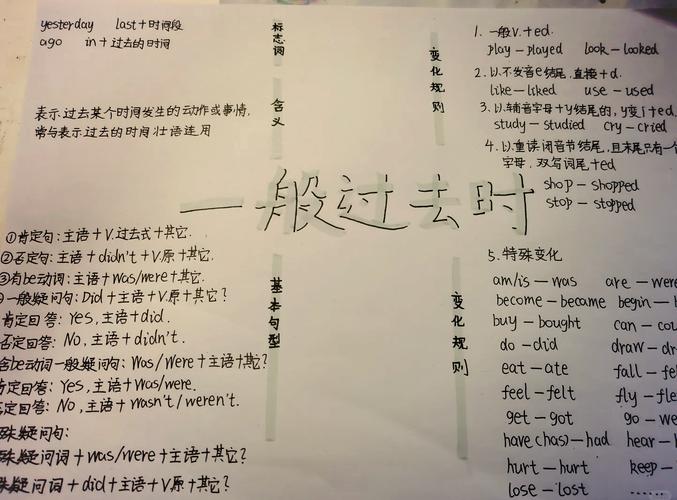 yesterday last+时间段
ago in+过去的时间
标志词
表示过去某个时间发生的动作或事情,
常与表示过去的时间壮语连用
含义
变化规则
1. 一般v.+ed.
play—played look—looked
2. 以不发音e结尾,直接+d.
like—liked use—used
3. 以辅音字母+y结尾的,y变i+ed.
study—studied cry—cried
4. 以重读闭音节结尾,且末尾只有一个
字母,双写词尾+ed
shop—shopped
stop—stopped
一般过去时
①肯定句:主语+V.过去式+其它.
②否定句:主语+didn't+V原+其它.
③有be动词:主语+was/were+其它.
一般疑问句:Did+主语+V.原+其它?
肯定回答:Yes,主语+did.
否定回答:No,主语+didn't.
含be动词一般疑问句:Was/Were+主语+其它?
肯定回答:Yes,主语+was/were.
否定回答:No,主语+wasn't/weren't.
殊疑问句:
殊疑问词+was/were+主语+其它?
疑问词+did+主语+V原+其它?
基本句型
变化规则
5. 特殊变化
am/is—was are—were
become—became begin—
buy—bought can—cou
do—did draw—dr
eat—ate fall—fel
feel—felt fly—fle
get—got go—we
have(has)—had hear—
hurt—hurt keep—
lose—lost ......